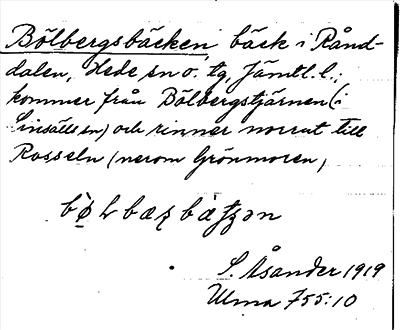 Bölbergsbäcken, bäck i Rånd-
dalen, Hede sn o. tg, Jämtl. l.;
kommer från Bölbergstjärnen (i
Linsälls sn) och rinner norrut till
Rosseln (nerom Grönmoren,
S. Åsander 1919
Ulma 755:10